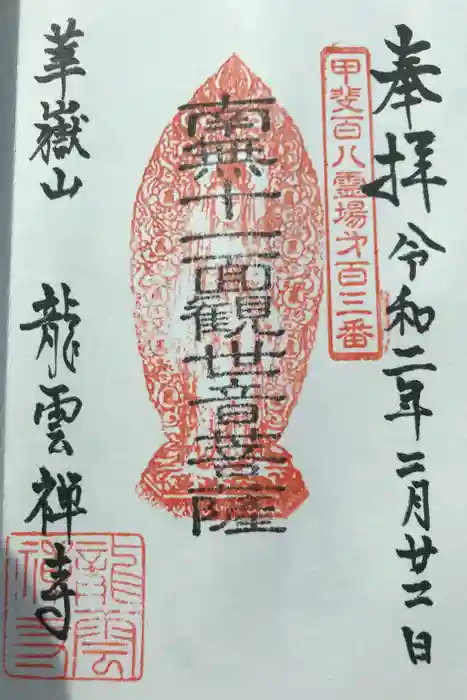 奉拝 令和二年二月廿二日
甲斐百八霊場第百三番
南無十一面觀世音菩薩
羊嶽山 龍雲禅寺
龍雲
禅寺